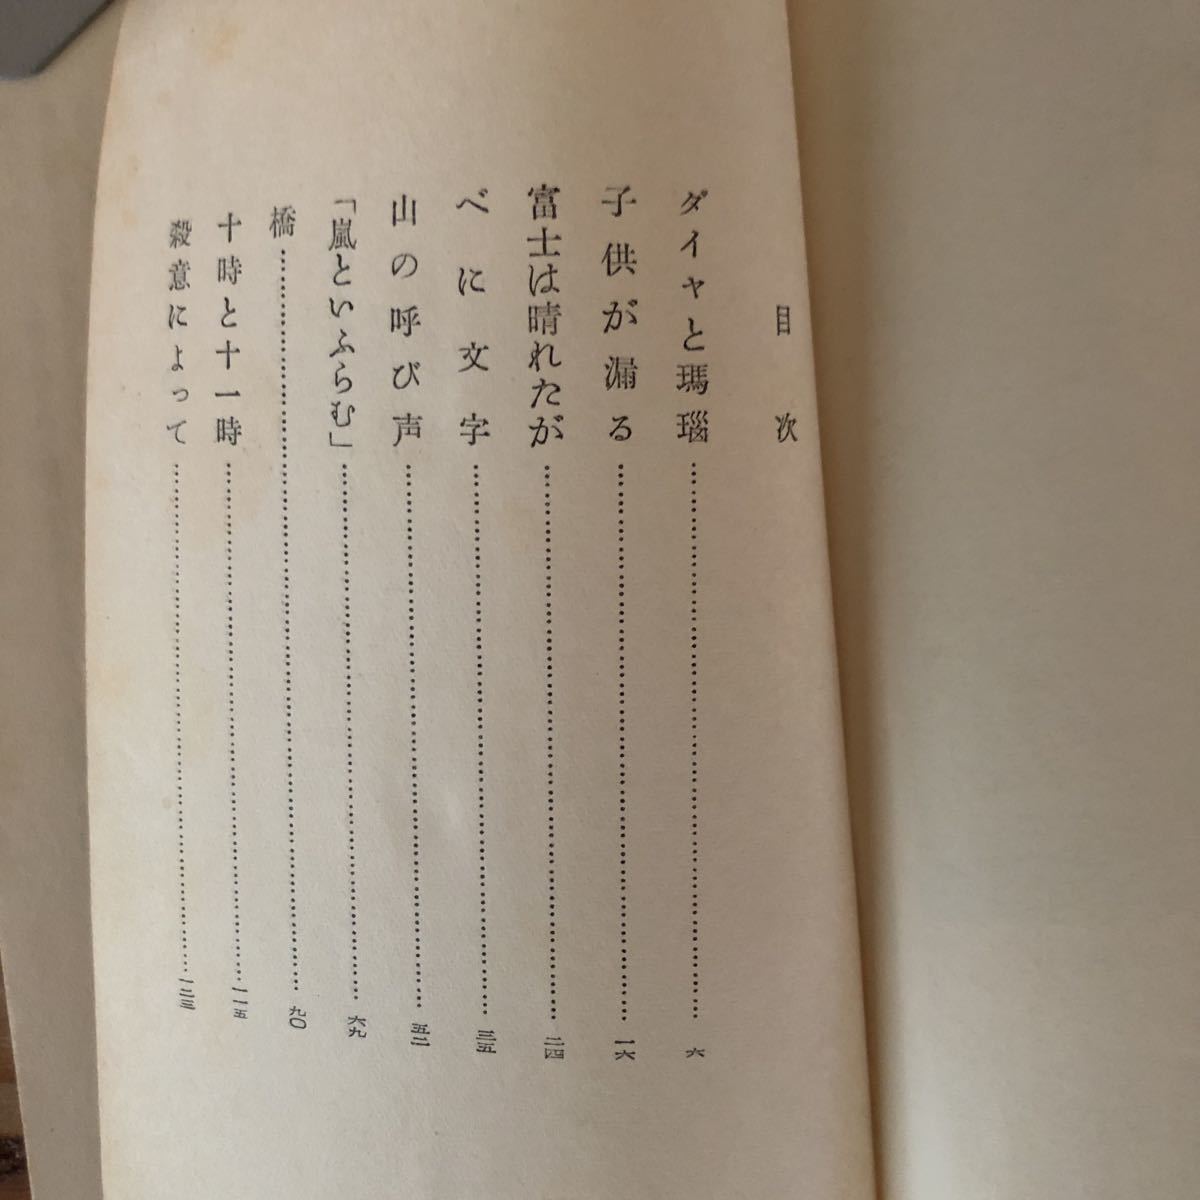 目次
ダイヤと瑪瑙……六
子供が漏る……一六
富士は晴れたが……二四
べに文字……三五
山の呼び声……五二
「嵐といふらむ」……六九
橋……九〇
十時と十一時……一一五
殺意によって……一二三